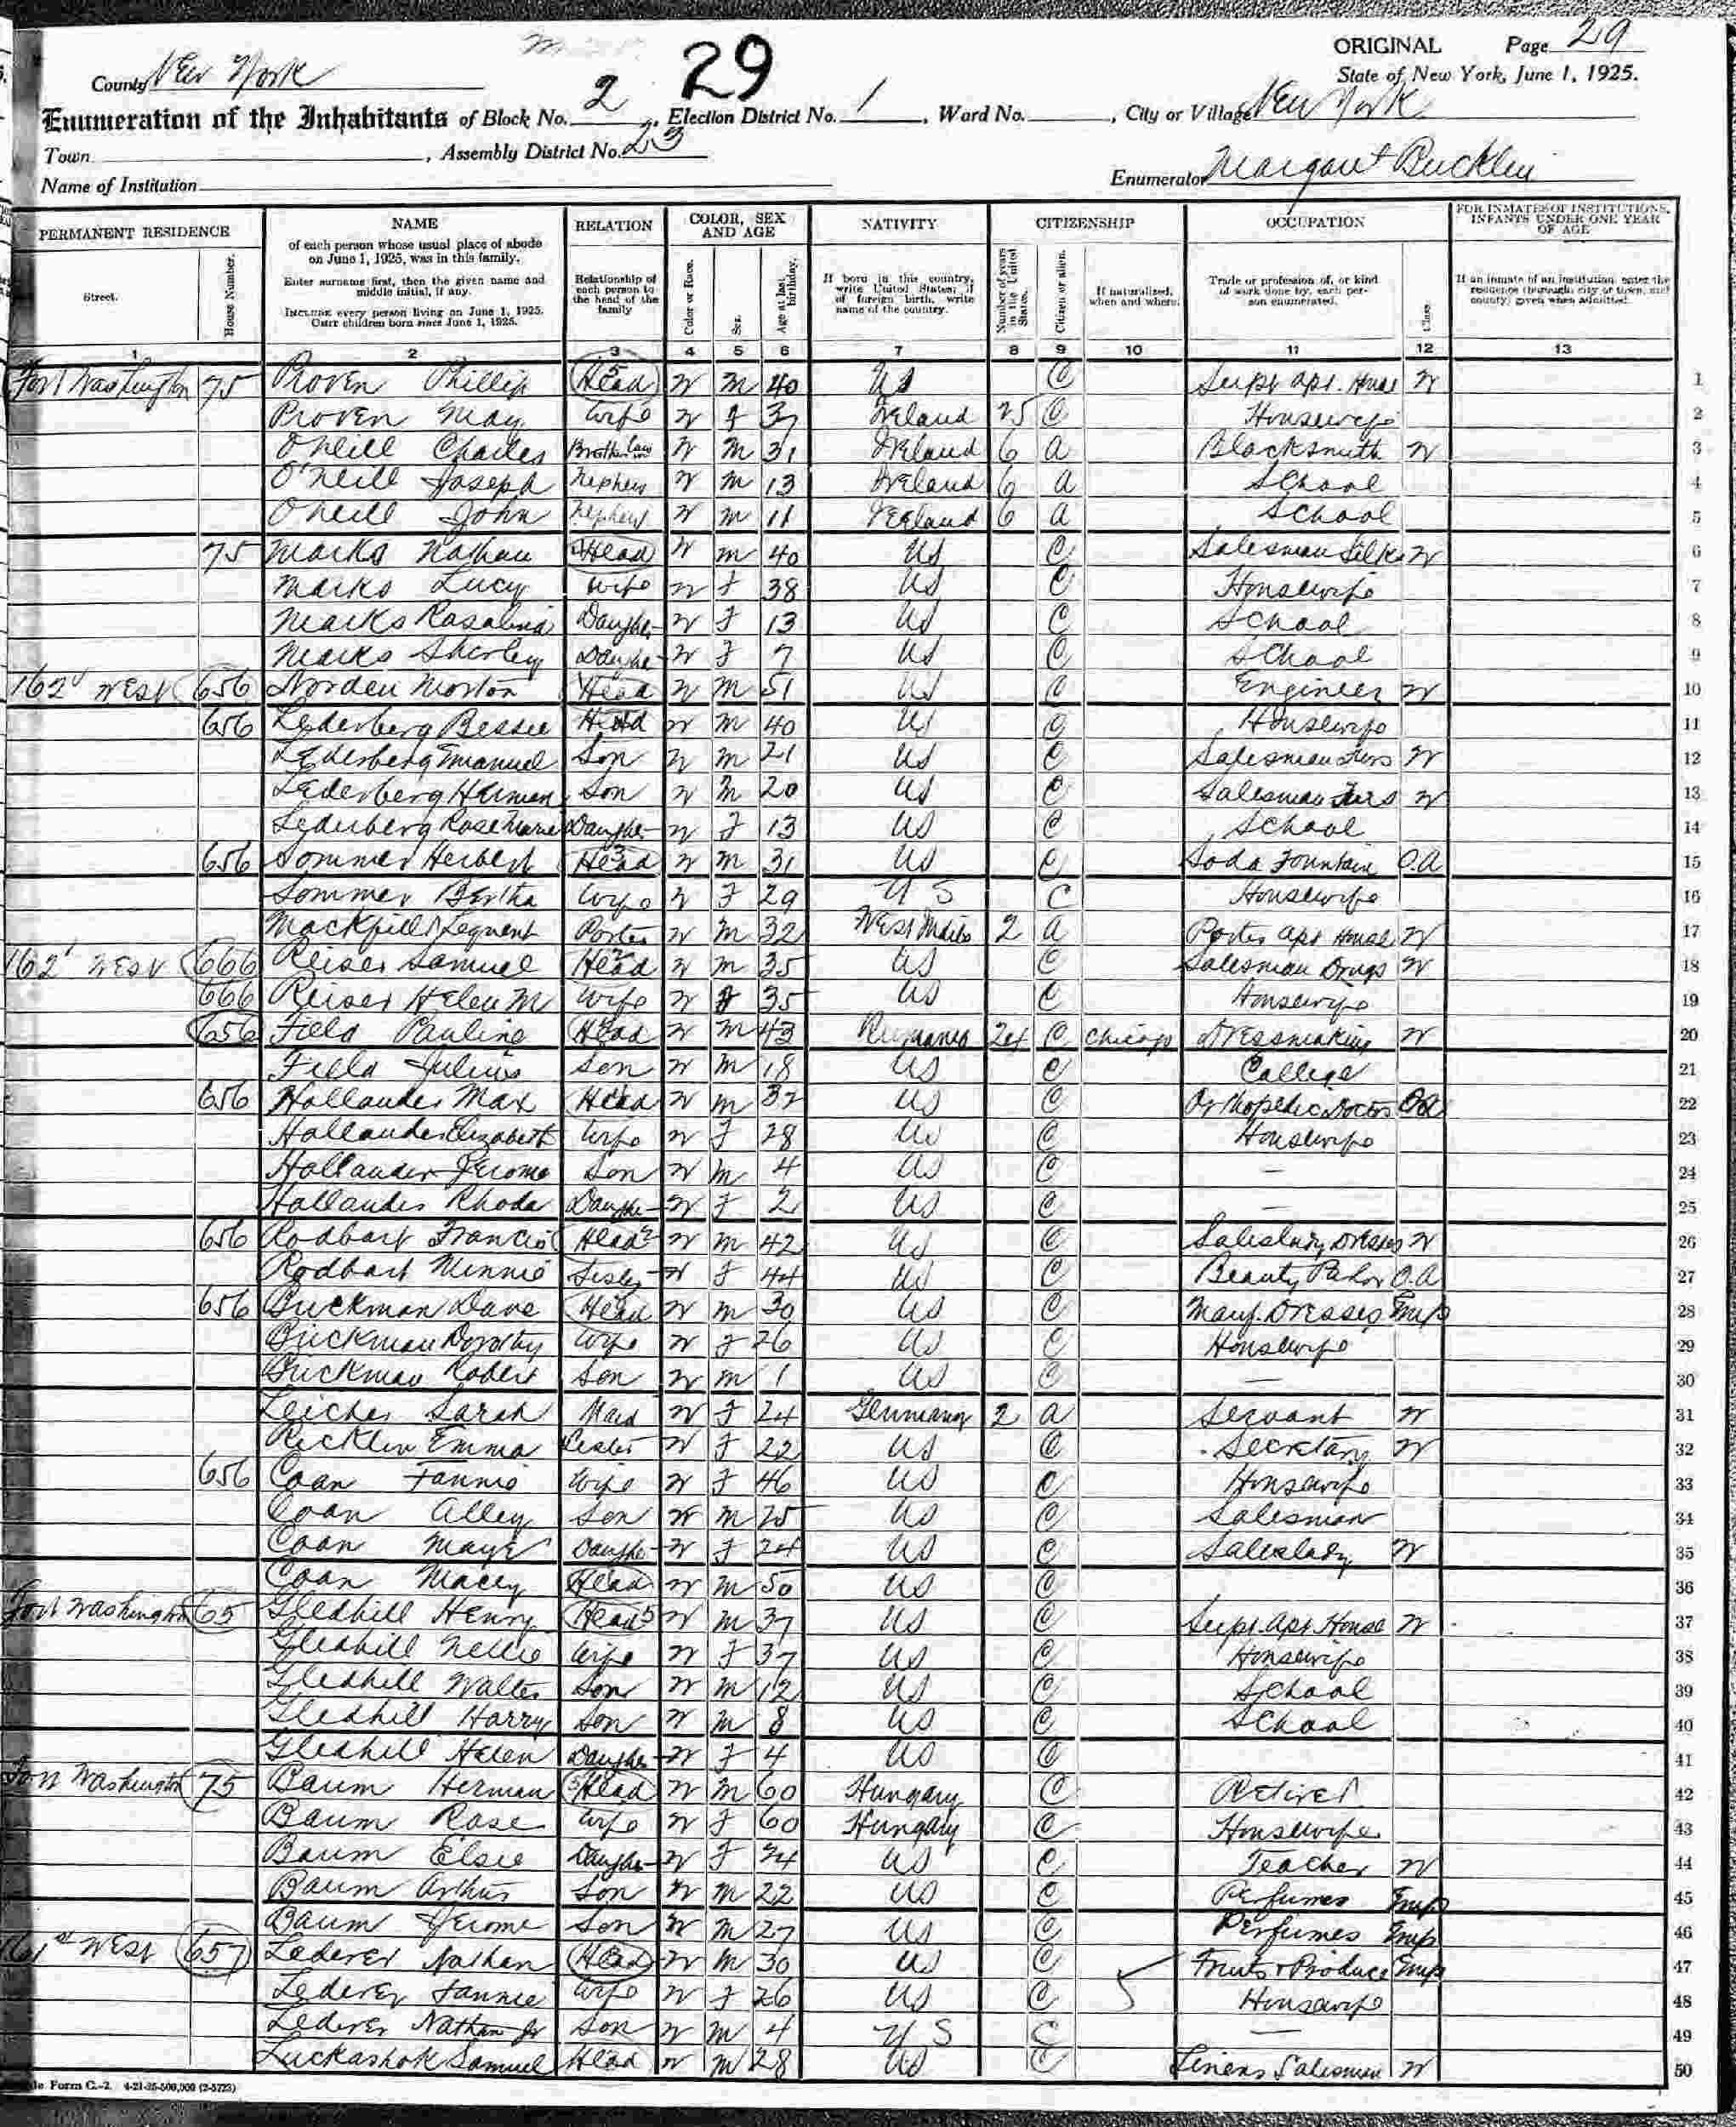 29
ORIGINAL Page 29
County New York
State of New York, June 1, 1925.
Enumeration of the Inhabitants of Block No. 2, Election District No. 1, Ward No. , City or Village New York
Town , Assembly District No. 23
Name of Institution
Enumerator Margaret
PERMANENT RESIDENCE NAME RELATION COLOR, SEX AND AGE NATIVITY CITIZENSHIP OCCUPATION FOR INMATES OF INSTITUTIONS, INFANTS UNDER ONE YEAR OF AGE
Street. House Number. of each person whose usual place of abode on June 1, 1925, was in this family. Enter surname first, then the given name and middle initial, if any. INCLUDE every person living on June 1, 1925. OMIT children born since June 1, 1925. Relationship of each person to the head of the family Color or Race. Sex. Age at last birthday. If born in this country, write United States; if of foreign birth, write name of the country. Number of years in the United States. Citizen or alien. If naturalized, when and where. Trade or profession of, or kind of work done by, each person enumerated. Class. If an inmate of an institution, enter the residence (borough, city or town, and county) given when admitted.
1 2 3 4 5 6 7 8 9 10 11 12 13
Fort Washington 75 Proven Phillip Head W M 40 US C Supt Apt. House W 1
Proven May Wife W F 37 Ireland 25 C Housewife 2
O'Neill Charles Brother law W M 31 Ireland 6 A Blacksmith W 3
O'Neill Joseph Nephew W M 13 Ireland 6 A School 4
O'Neill John Nephew W M 11 Ireland 6 A School 5
75 Marks Nathan Head W M 40 US C Salesman Silks W 6
Marks Lucy Wife W F 38 US C Housewife 7
Marks Rosalind Daughter W F 13 US C School 8
Marks Shirley Daughter W F 7 US C School 9
162 West 656 Norden Morton Head W M 51 US C Engineer W 10
656 Lederberg Bessie Head W M 40 US C Housewife 11
Lederberg Emanuel Son W M 21 US C Salesman Furs W 12
Lederberg Herman Son W M 20 US C Salesman Furs W 13
Lederberg Rose Marie Daughter W F 13 US C School 14
656 Sommer Herbert Head W M 31 US C Soda Fountain O.A 15
Sommer Bertha Wife W F 29 U S C Housewife 16
Porter W M 32 West Indies 2 A Porter Apt House W 17
162 West 666 Reiser Samuel Head W M 35 US C Salesman Drugs W 18
666 Reiser Helen M Wife W F 35 US C Housewife 19
656 Field Pauline Head W M 43 Rumania 24 C Chicago Dressmaking W 20
Field Julius Son W M 18 US C College 21
656 Hollander Max Head W M 32 US C Orthopedic Doctor O.A 22
Hollander Elizabeth Wife W F 28 US C Housewife 23
Hollander Jerome Son W M 4 US C — 24
Hollander Rhoda Daughter W F 2 US C — 25
656 Rodbart Francis Head W M 42 US C Saleslady Dresses W 26
Rodbart Minnie Sister W F 44 US C Beauty Parlor O.A 27
656 Buckman Dave Head W M 30 US C Manf. Dresses Emp 28
Buckman Dorothy Wife W F 26 US C Housewife 29
Buckman Robert Son W M 1 US C — 30
Leicher Sarah Maid W F 24 Germany 2 A Servant W 31
Ricklin Emma Sister W F 22 US C Secretary W 32
656 Coan Fannie Wife W F 46 US C Housewife 33
Coan Alley Son W M 25 US C Salesman 34
Coan Maye Daughter W F 24 US C Saleslady W 35
Coan Macey Head W M 50 US C 36
Fort Washington 65 Gledhill Henry Head W M 37 US C Supt. Apt. House W 37
Gledhill Nellie Wife W F 37 US C Housewife 38
Gledhill Walter Son W M 12 US C School 39
Gledhill Harry Son W M 8 US C School 40
Gledhill Helen Daughter W F 4 US C 41
Fort Washington 75 Baum Herman Head W M 60 Hungary C Retired 42
Baum Rose Wife W F 60 Hungary C Housewife 43
Baum Elsie Daughter W F 24 US C Teacher W 44
Baum Arthur Son W M 22 US C Perfumes Emp 45
Baum Jerome Son W M 27 US C Perfumes Emp 46
161st West 657 Lederer Nathan Head W M 30 US C Fruits & Produce Emp 47
Lederer Fannie Wife W F 26 US C Housewife 48
Lederer Nathan Jr Son W M 4 U S C — 49
Luckashok Samuel Head W M 28 US C Linens Salesman W 50
Form C.-2. 4-21-25-500,000 (2-5723)